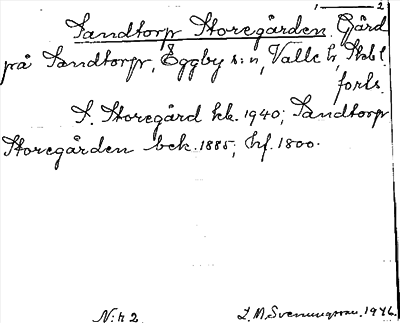 1 — 2
Sandtorp Storegården. Gård
på Sandtorp, Eggby s:n, Valle h, Skbl.
forts.
S. Storegård kk. 1940; Sandtorp
Storegården bek. 1885; hf. 1800.
N:r 2. L. M. Svenungsson. 1946.